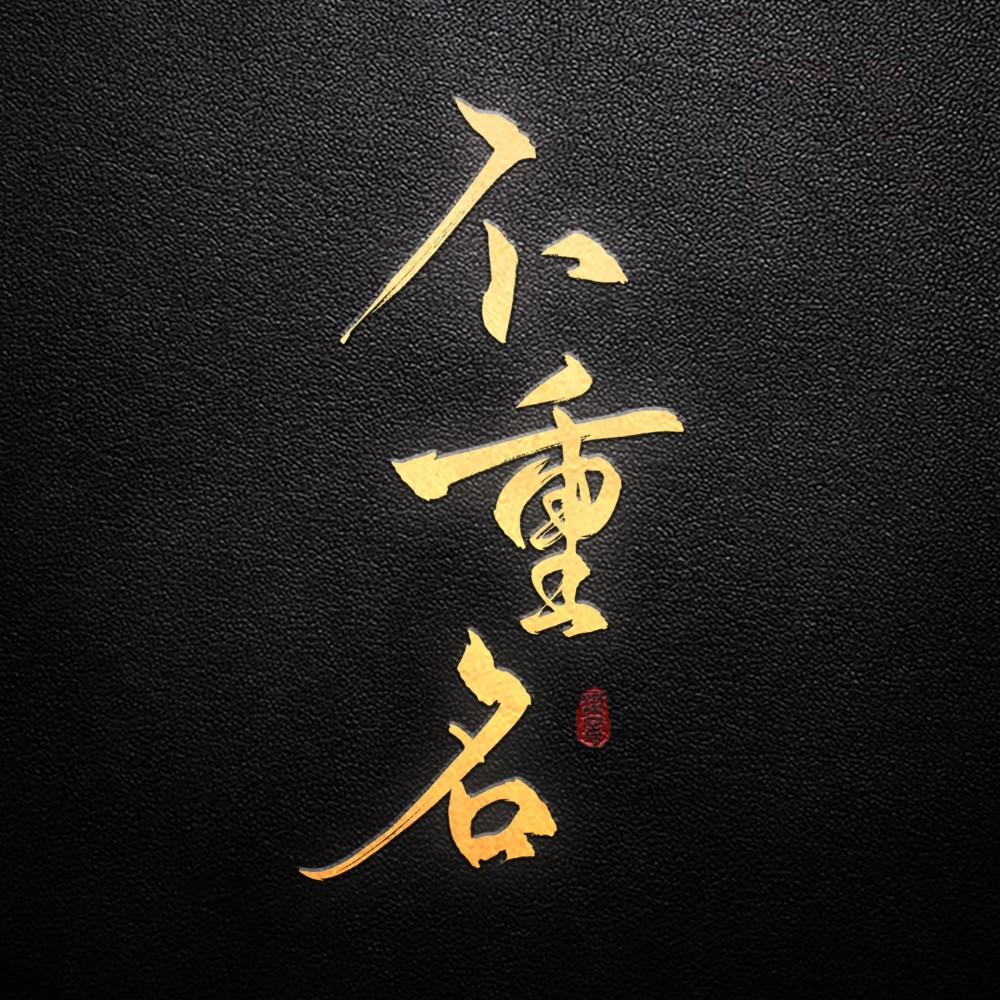 不重名